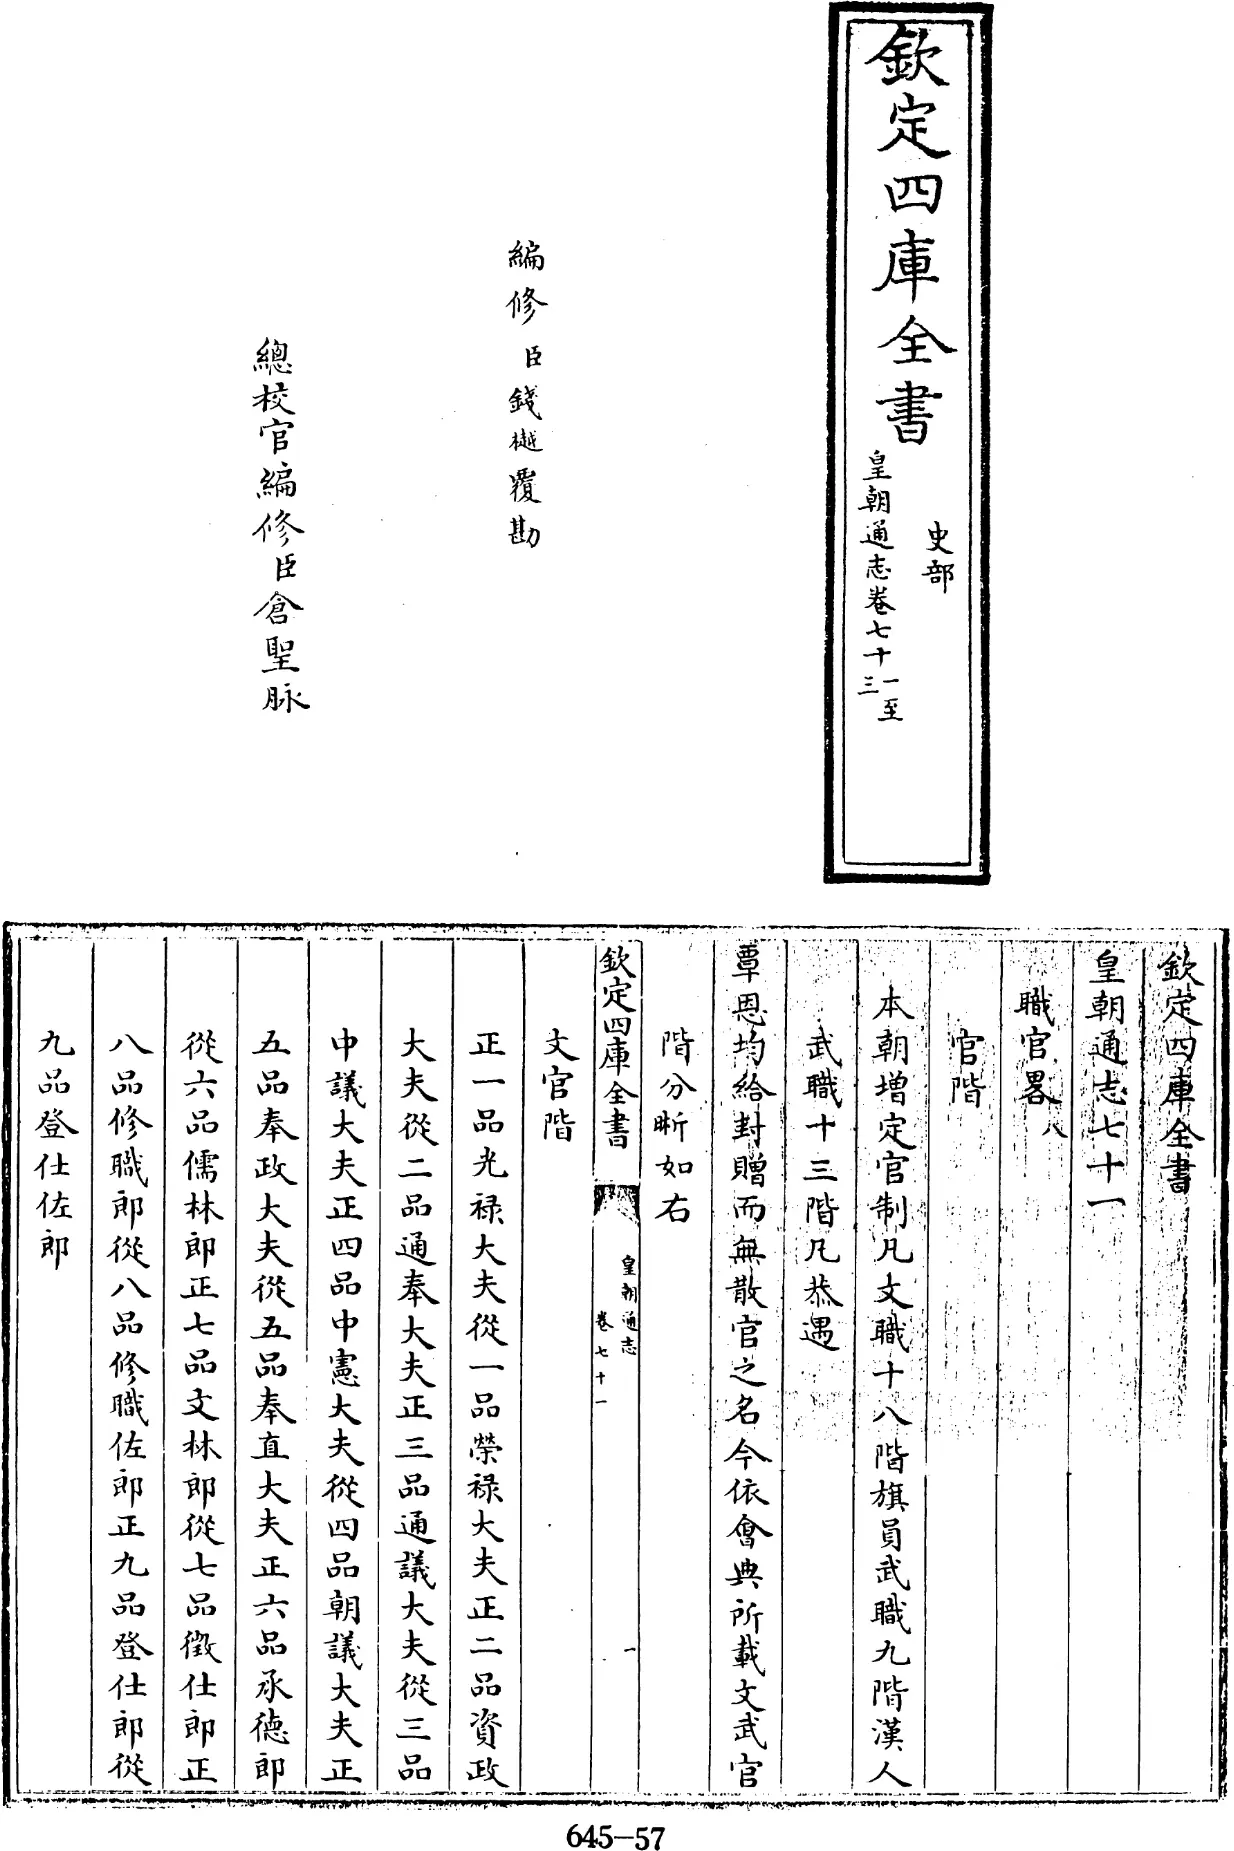 欽定四庫全書
史部
皇朝通志卷七十一至三
編修臣錢樾覆勘
總校官編修臣倉聖脉
欽定四庫全書
皇朝通志七十一
職官畧八
官階
本朝增定官制凡文職十八階旗員武職九階漢人
武職十三階凡恭遇
覃恩均給封贈而無散官之名今依會典所載文武官
階分晣如右
欽定四庫全書
皇朝通志
卷七十一
一
文官階
正一品光禄大夫從一品榮禄大夫正二品資政
大夫從二品通奉大夫正三品通議大夫從三品
中議大夫正四品中憲大夫從四品朝議大夫正
五品奉政大夫從五品奉直大夫正六品承德郎
從六品儒林郎正七品文林郎從七品徵仕郎正
八品修職郎從八品修職佐郎正九品登仕郎從
九品登仕佐郎
645-57